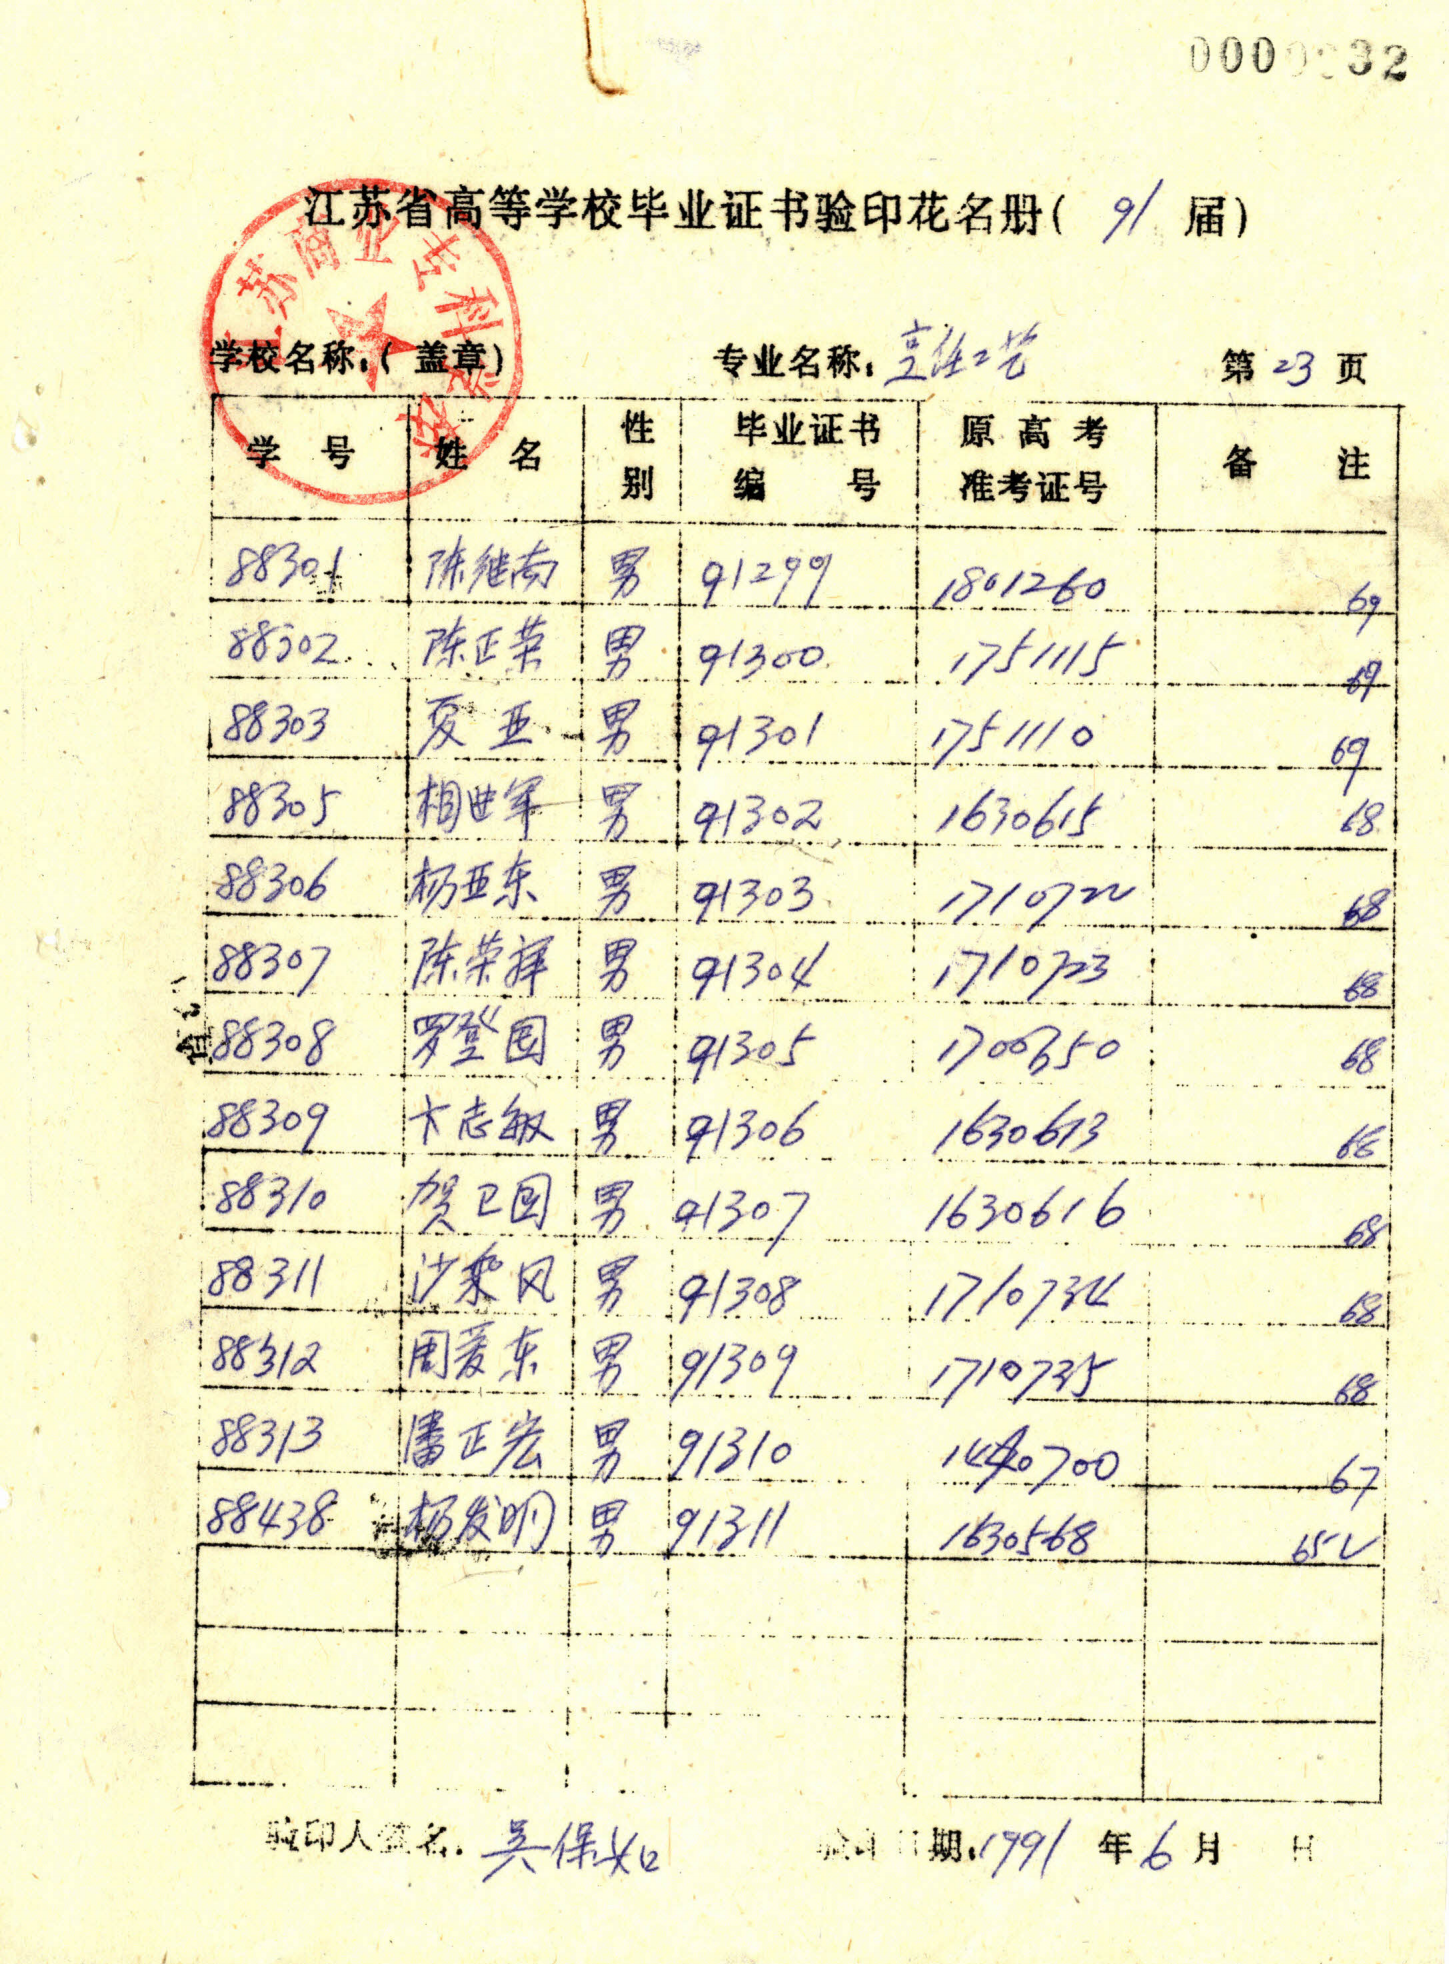 32
江苏省高等学校毕业证书验印花名册( 91 届)
苏商业专科学校
学校名称:( 盖章) 专业名称: 烹饪工艺 第 23 页
学 号 姓 名 性别 毕业证书编 号 原高考准考证号 备 注
88301 陈继南 男 91299 1801260 69
88302 陈正荣 男 91300 1751115 69
88303 夏亚 男 91301 1751110 69
88305 相世军 男 91302 1630615 68
88306 杨亚东 男 91303 1710722 68
88307 陈荣辉 男 91304 1710723 68
88308 罗登国 男 91305 68
88309 卞志敏 男 91306 1630613
88310 贺卫国 男 91307 1630616 68
88311 沙乘风 男 91308 1710734 68
88312 周爱东 男 91309 1710735 68
88313 潘正宏 男 91310 67
88438 杨发明 男 91311 1630568 65
验印人签名: 吴保如 验印日期: 1991 年 6 月 日